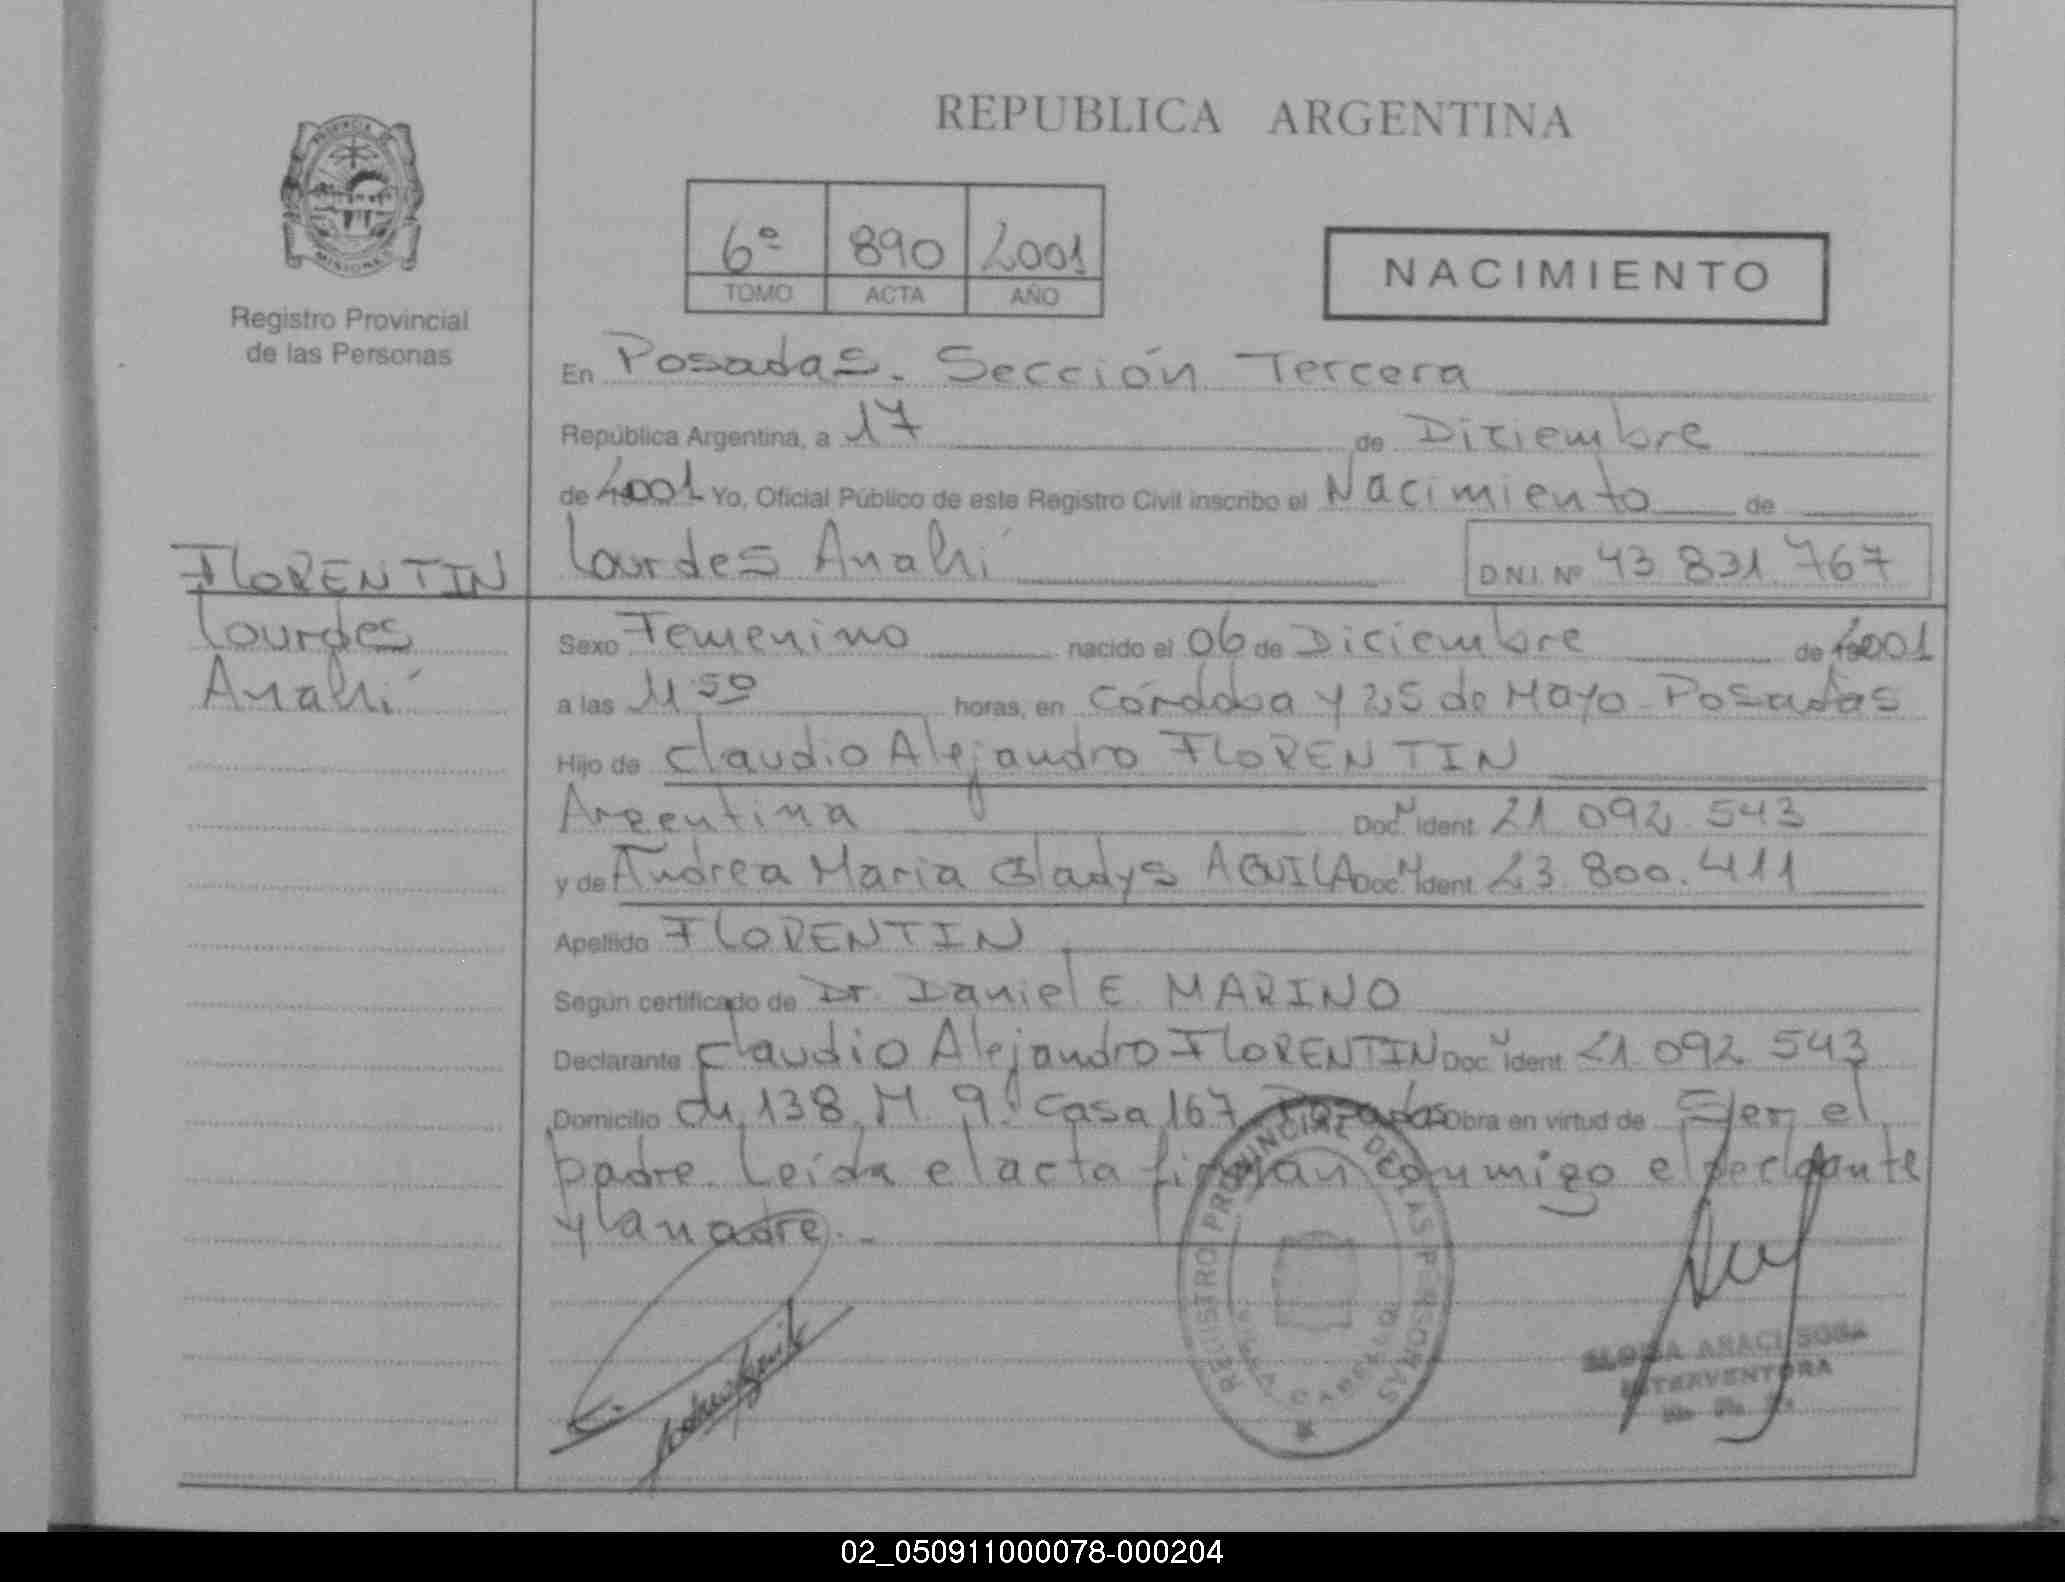 REPUBLICA ARGENTINA
PROVINCIA DE
MISIONES
Registro Provincial
de las Personas
6º 890 2001
TOMO ACTA AÑO
NACIMIENTO
En Posadas. Sección Tercera
República Argentina, a 17 de Diciembre
de 2001 Yo, Oficial Público de este Registro Civil inscribo el Nacimiento de
Lourdes Anahí D.N.I. Nº 43 831 767
FLORENTIN
Lourdes
Anahí
Sexo Femenino nacido el 06 de Diciembre de 2001
a las 11 50 horas, en Córdoba y 25 de Mayo - Posadas
Hijo de Claudio Alejandro FLORENTIN
Argentina Doc. Ident. 21 092 543
y de Andrea Maria Gladys AQUILA Doc. Ident. 23 800.411
Apellido FLORENTIN
Según certificado de Dr. Daniel E MARINO
Declarante Claudio Alejandro FLORENTIN Doc. Ident. 21 092 543
Domicilio Ch 138 M 9 Casa 167 Posadas Obra en virtud de Ser el
padre. Leída el acta firman conmigo el declarante
y la madre. -
REGISTRO PROVINCIAL DE LAS PERSONAS
INTERVENTORA
02_050911000078-000204